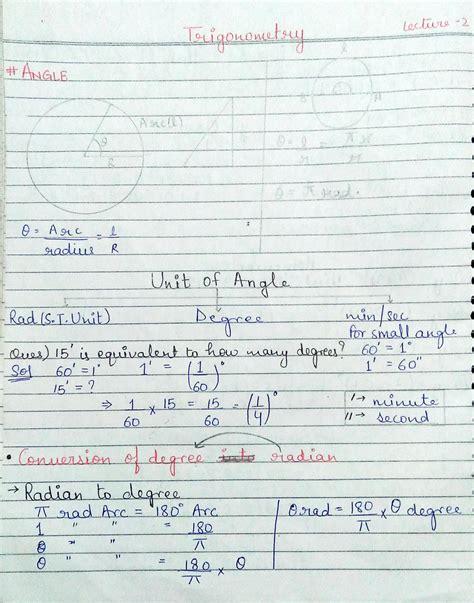 Lecture - 2
Trigonometry
# ANGLE
Arc(l)
θ
R
l
θ = l/r = πr/r
θ = π rad.
θ = Arc/radius = l/R
Unit of Angle
Rad (S.I. Unit) Degree min/sec
for small angle
Ques) 15' is equivalent to how many degrees? 60' = 1°
Sol 60' = 1° 1' = (1/60)° 1' = 60"
15' = ?
⇒ 1/60 × 15 = 15/60 = (1/4)°
' → minute
" → second
• Conversion of degree into radian
→ Radian to degree
π rad Arc = 180° Arc
1 " " = 180/π
θ " " = 180/π × θ
θ rad = 180/π × θ degree